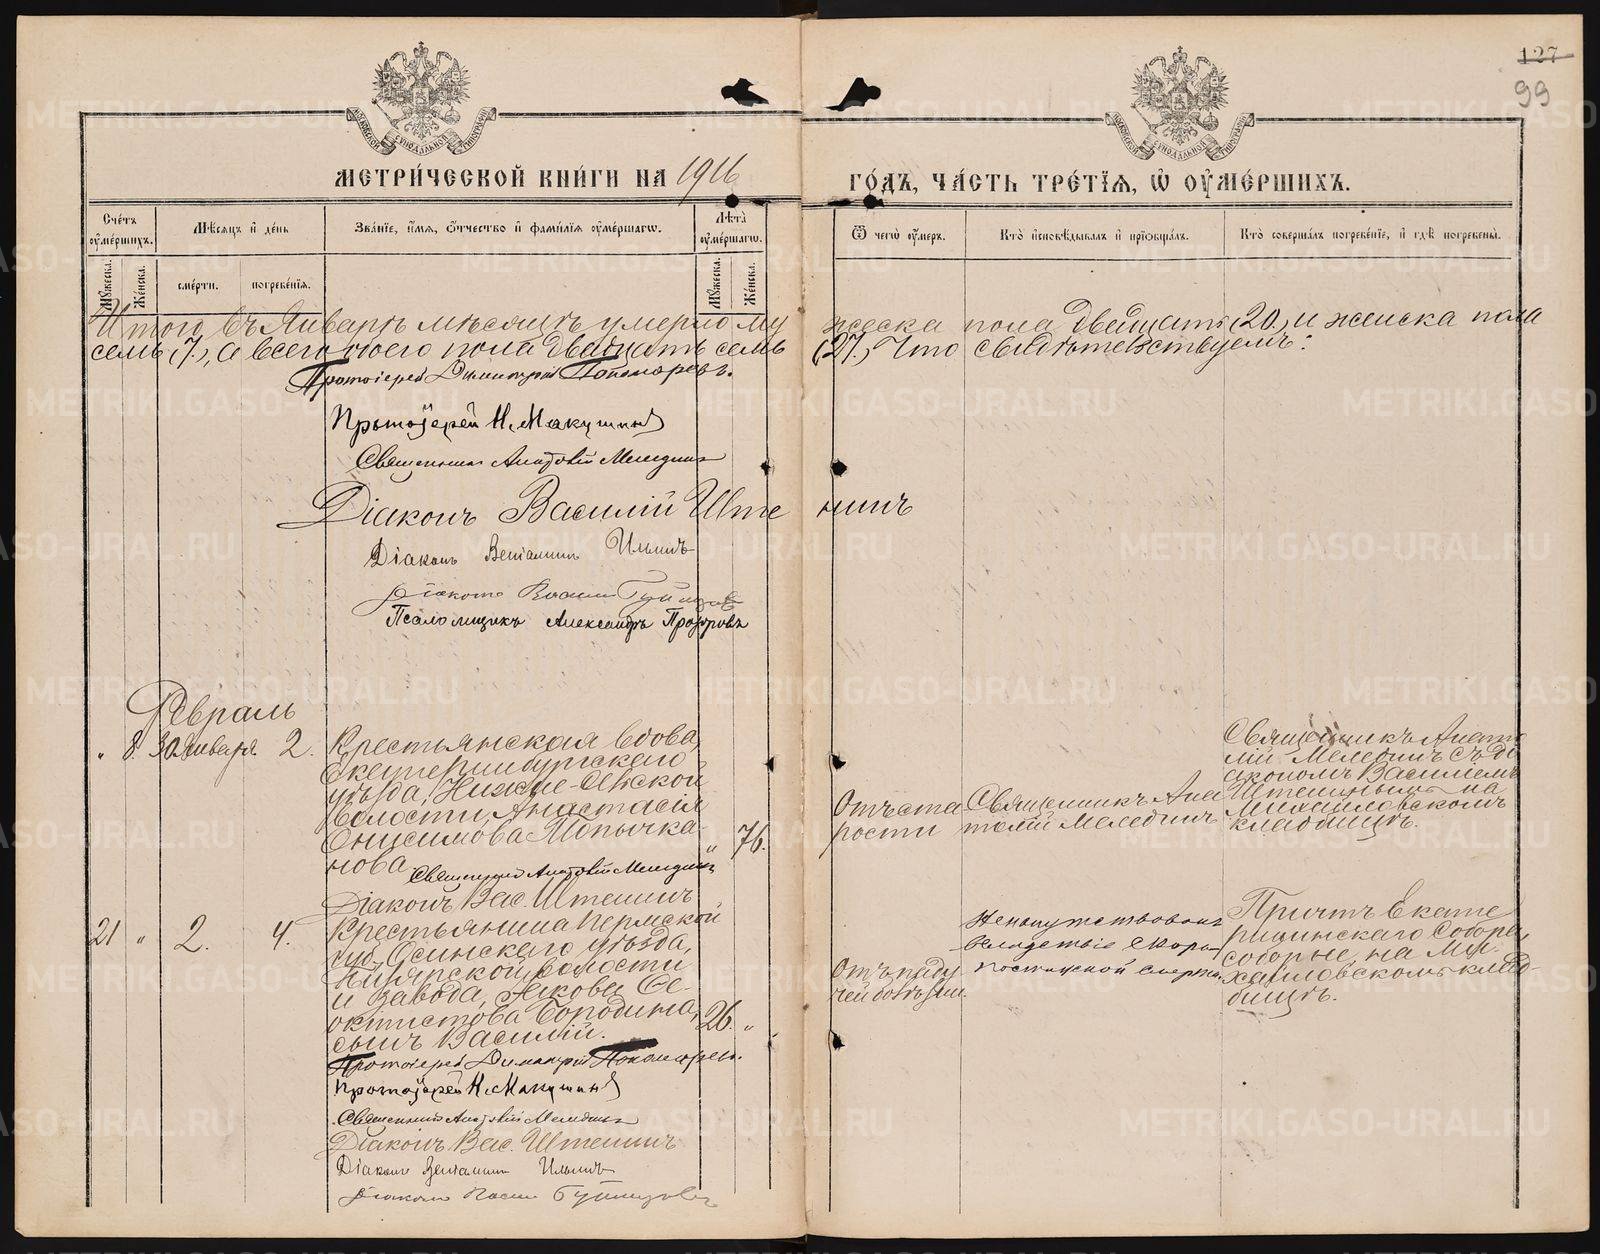 127
99
МЕТРИЧЕСКОЙ КНИГИ НА 1916 ГОДЪ, ЧАСТЬ ТРЕТІЯ, Ѡ ОУМЕРШИХЪ.
МОСКОВСКОЙ СѴНОДАЛЬНОЙ ТИПОГРАФІИ
МОСКОВСКОЙ СѴНОДАЛЬНОЙ ТИПОГРАФІИ
Счетъ оумершихъ.
Мужеска.
Женска.
Мѣсяцъ и день
смерти.
погребенія.
Званіе, имя, ѻтчество и фамилія оумершагѡ.
Лѣта оумершагѡ.
Мужеска.
Женска.
Ѿ чегѡ оумеръ.
Кто исповѣдывалъ и пріѡбщалъ.
Кто совершалъ погребеніе, и гдѣ погребены.
Итого въ Январѣ мѣсяцѣ умерло му жеска пола двадцать (20.) и женска пола
семь (7.), а всего обоего пола двадцать семь (27.) Что свидѣтельствуемъ:
Протоіерей Димитрій Пономаревъ.
Протоіерей Н. Макушинъ
Священникъ Анатолій Меледин
Діаконъ Василій Иште нинъ
Діаконъ Веніаминъ Ильинъ
Діаконъ
Псаломщикъ Александръ
Февраль
„ 8. 30 Января. 2.
Крестьянская вдова,
Екатеринбургскаго
уѣзда, Нижне-
волости, Анастасія
Онисимова Мопычка-
нова
„ 76.
Отъ ста
рости
Священникъ Ана
толій Мелединъ
Священникъ Анато
лій Мелединъ съ ді
акономъ Василіемъ
Иштенинымъ на
Михайловскомъ
кладбищѣ.
Священникъ Анатолій Мелединъ
Діаконъ Вас. Иштенинъ
21 „ 2. 4.
Крестьянина Пермской
губ. Осинскаго уѣзда,
волости
и завода, Якова Ѳе-
октистова Бородина,
сынъ Василій.
26. „
Отъ паду
чей болѣзни.
вслѣдствіе скоро
постижной смерти,
Причтъ Екате
рининскаго Собора,
соборне, на Ми-
хайловскомъ клад-
бищѣ.
Протоіерей Димитрій Пономаревъ.
Протоіерей Н. Макушинъ
Священникъ Анатолій Меледин
Діаконъ Вас. Иштенинъ
Діаконъ Веніаминъ Ильинъ
Діаконъ
METRIKI.GASO-URAL.RU